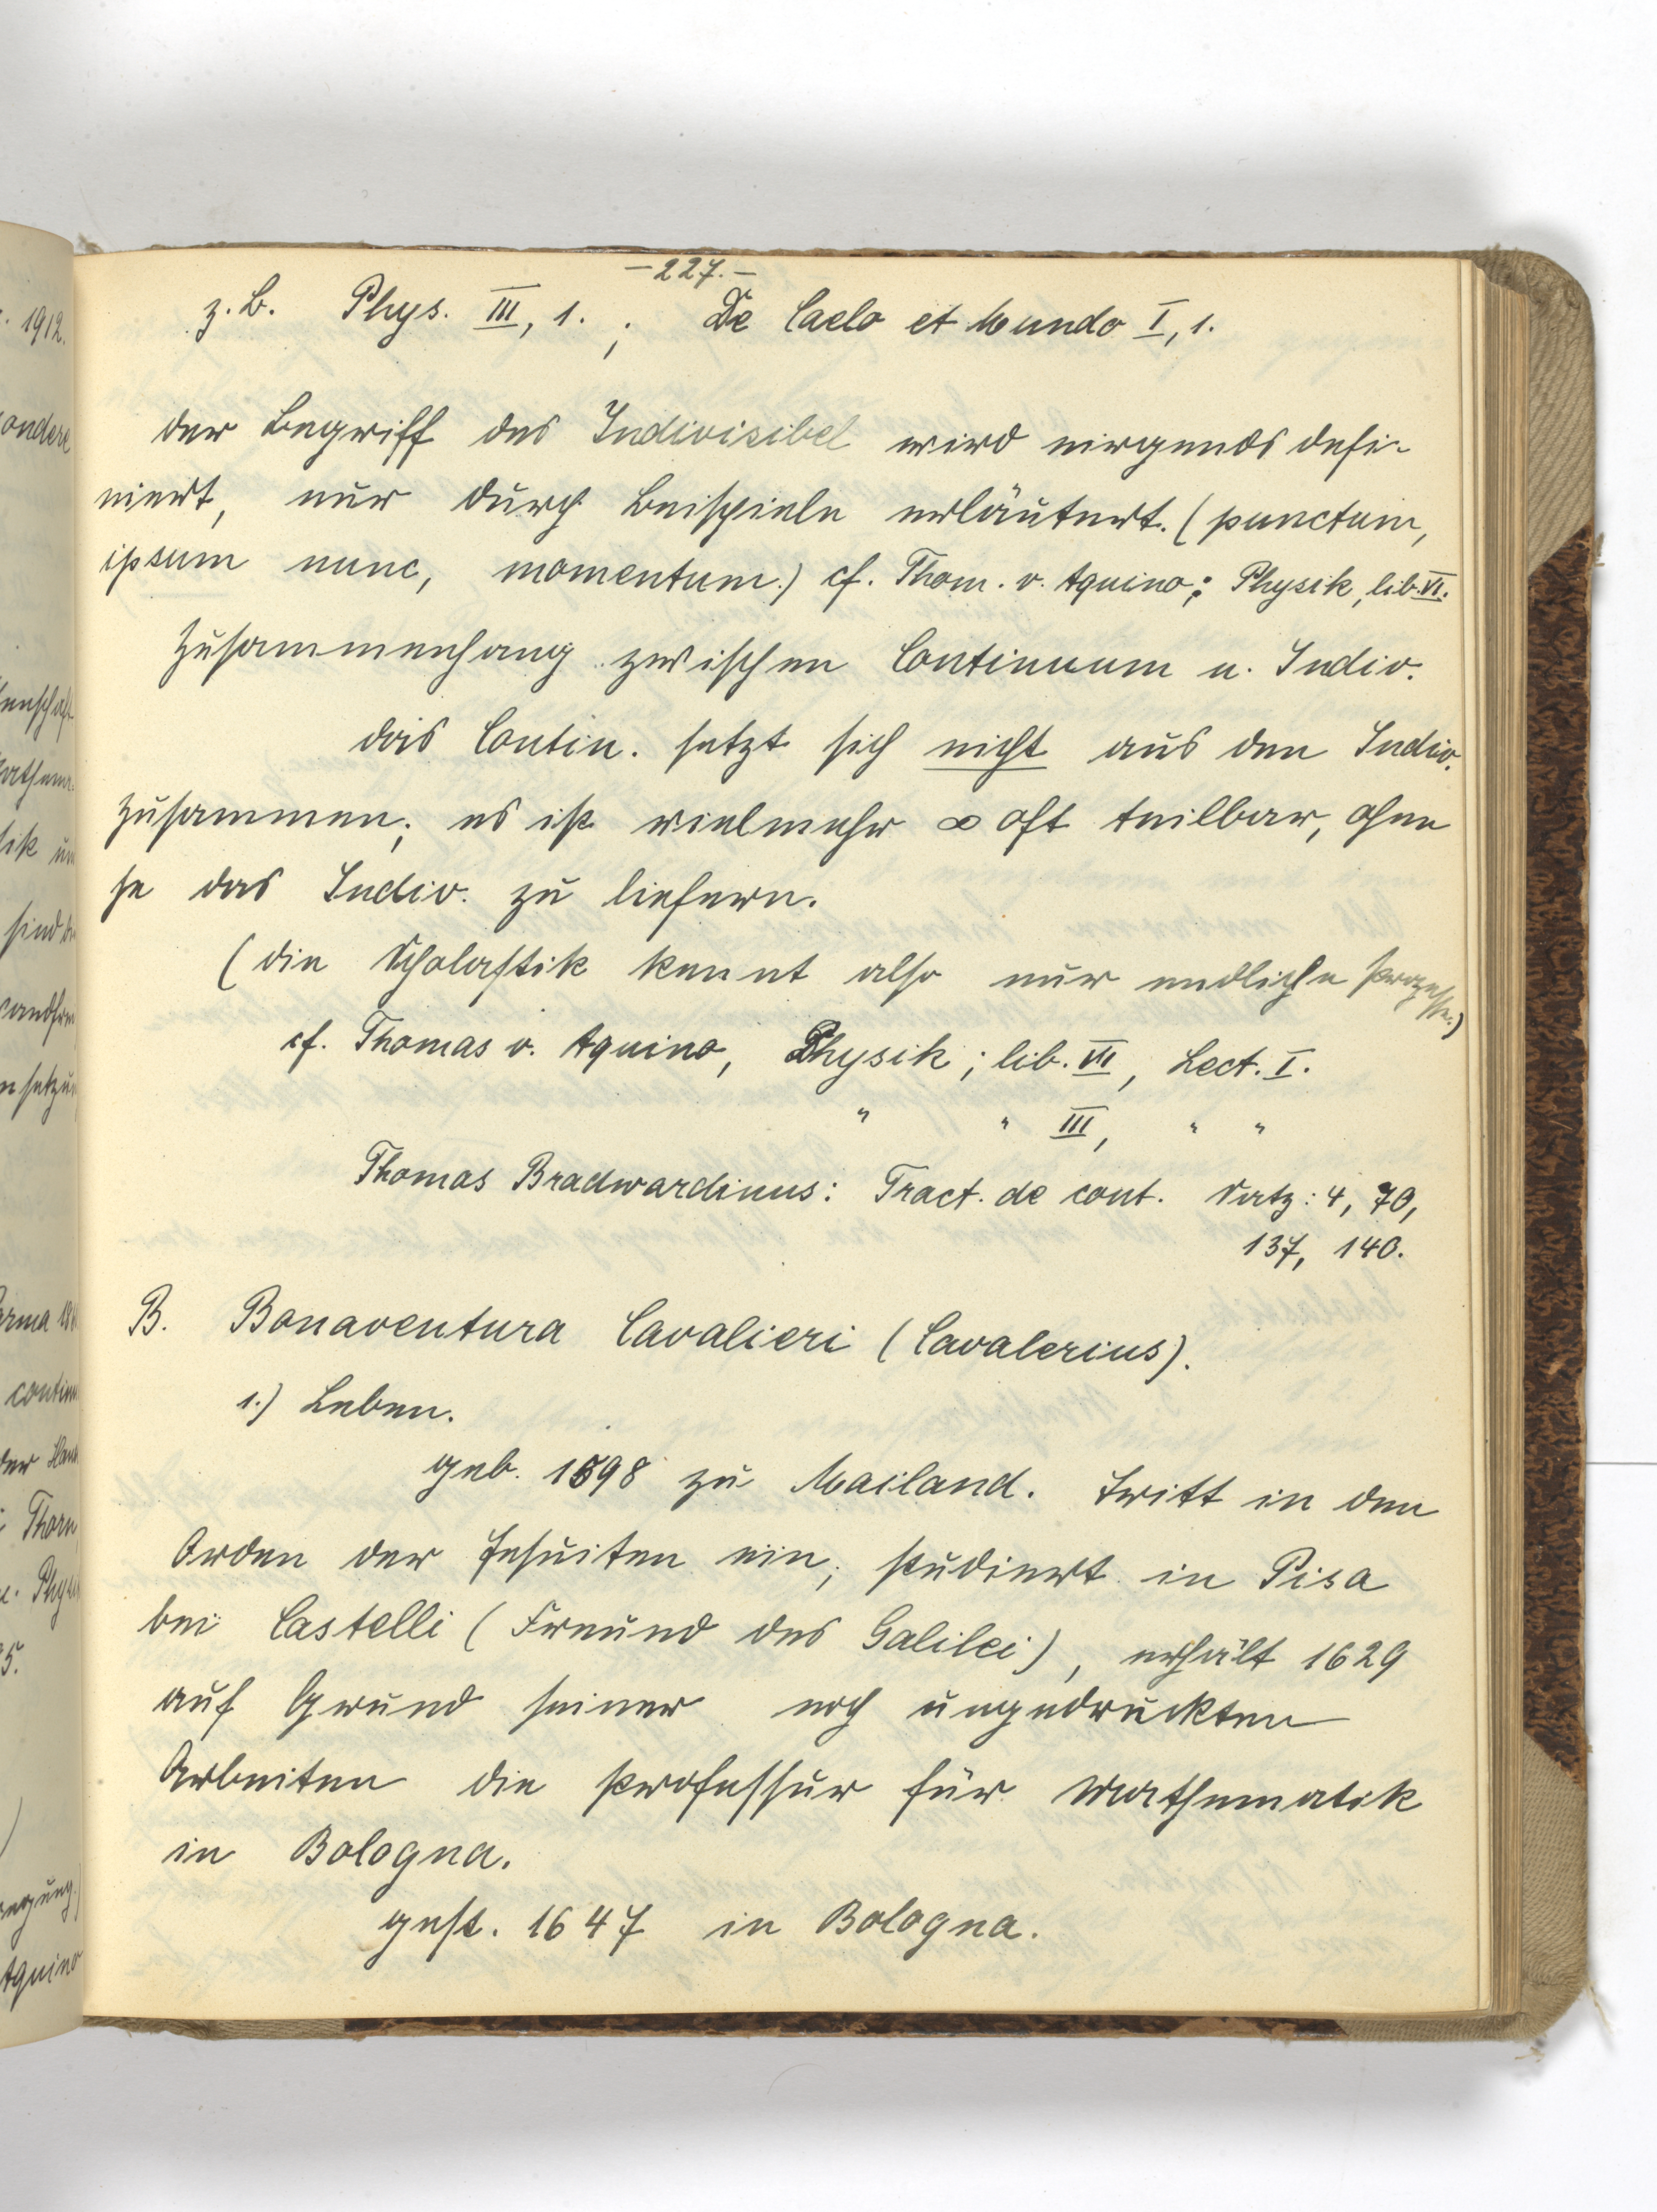 -227.-
z.B. Phys. III, 1. ; De Caelo et Mundo I, 1.
der Begriff des Indivisibel wird nirgends defi-
niert, nur durch Beispiele erläutert. (punctum,
ipsum nunc, momentum.) cf. Thom. v. Aquino; Physik, lib. VI.
Zusammenhang zwischen Continuum u. Indiv.
das Contin. setzt sich nicht aus den Indiv.
zusammen; es ist vielmehr ∞ oft teilbar, ohne
je das Indiv. zu liefern.
(die Scholastik kennt also nur endliche Prozesse.)
cf. Thomas v. Aquino, Physik; lib. VII, Lect. I.
" " III, " "
Thomas Bradwardinus: Tract. de cont. Satz: 4, 70,
137, 140.
B. Bonaventura Cavalieri (Cavalerius).
1.) Leben.
geb. 1598 zu Mailand. Tritt in den
Orden der Jesuiten ein; studiert in Pisa
bei Castelli (Freund des Galilei), erhält 1629
auf Grund seiner noch ungedruckten
Arbeiten die Professur für Mathematik
in Bologna.
gest. 1647 in Bologna.